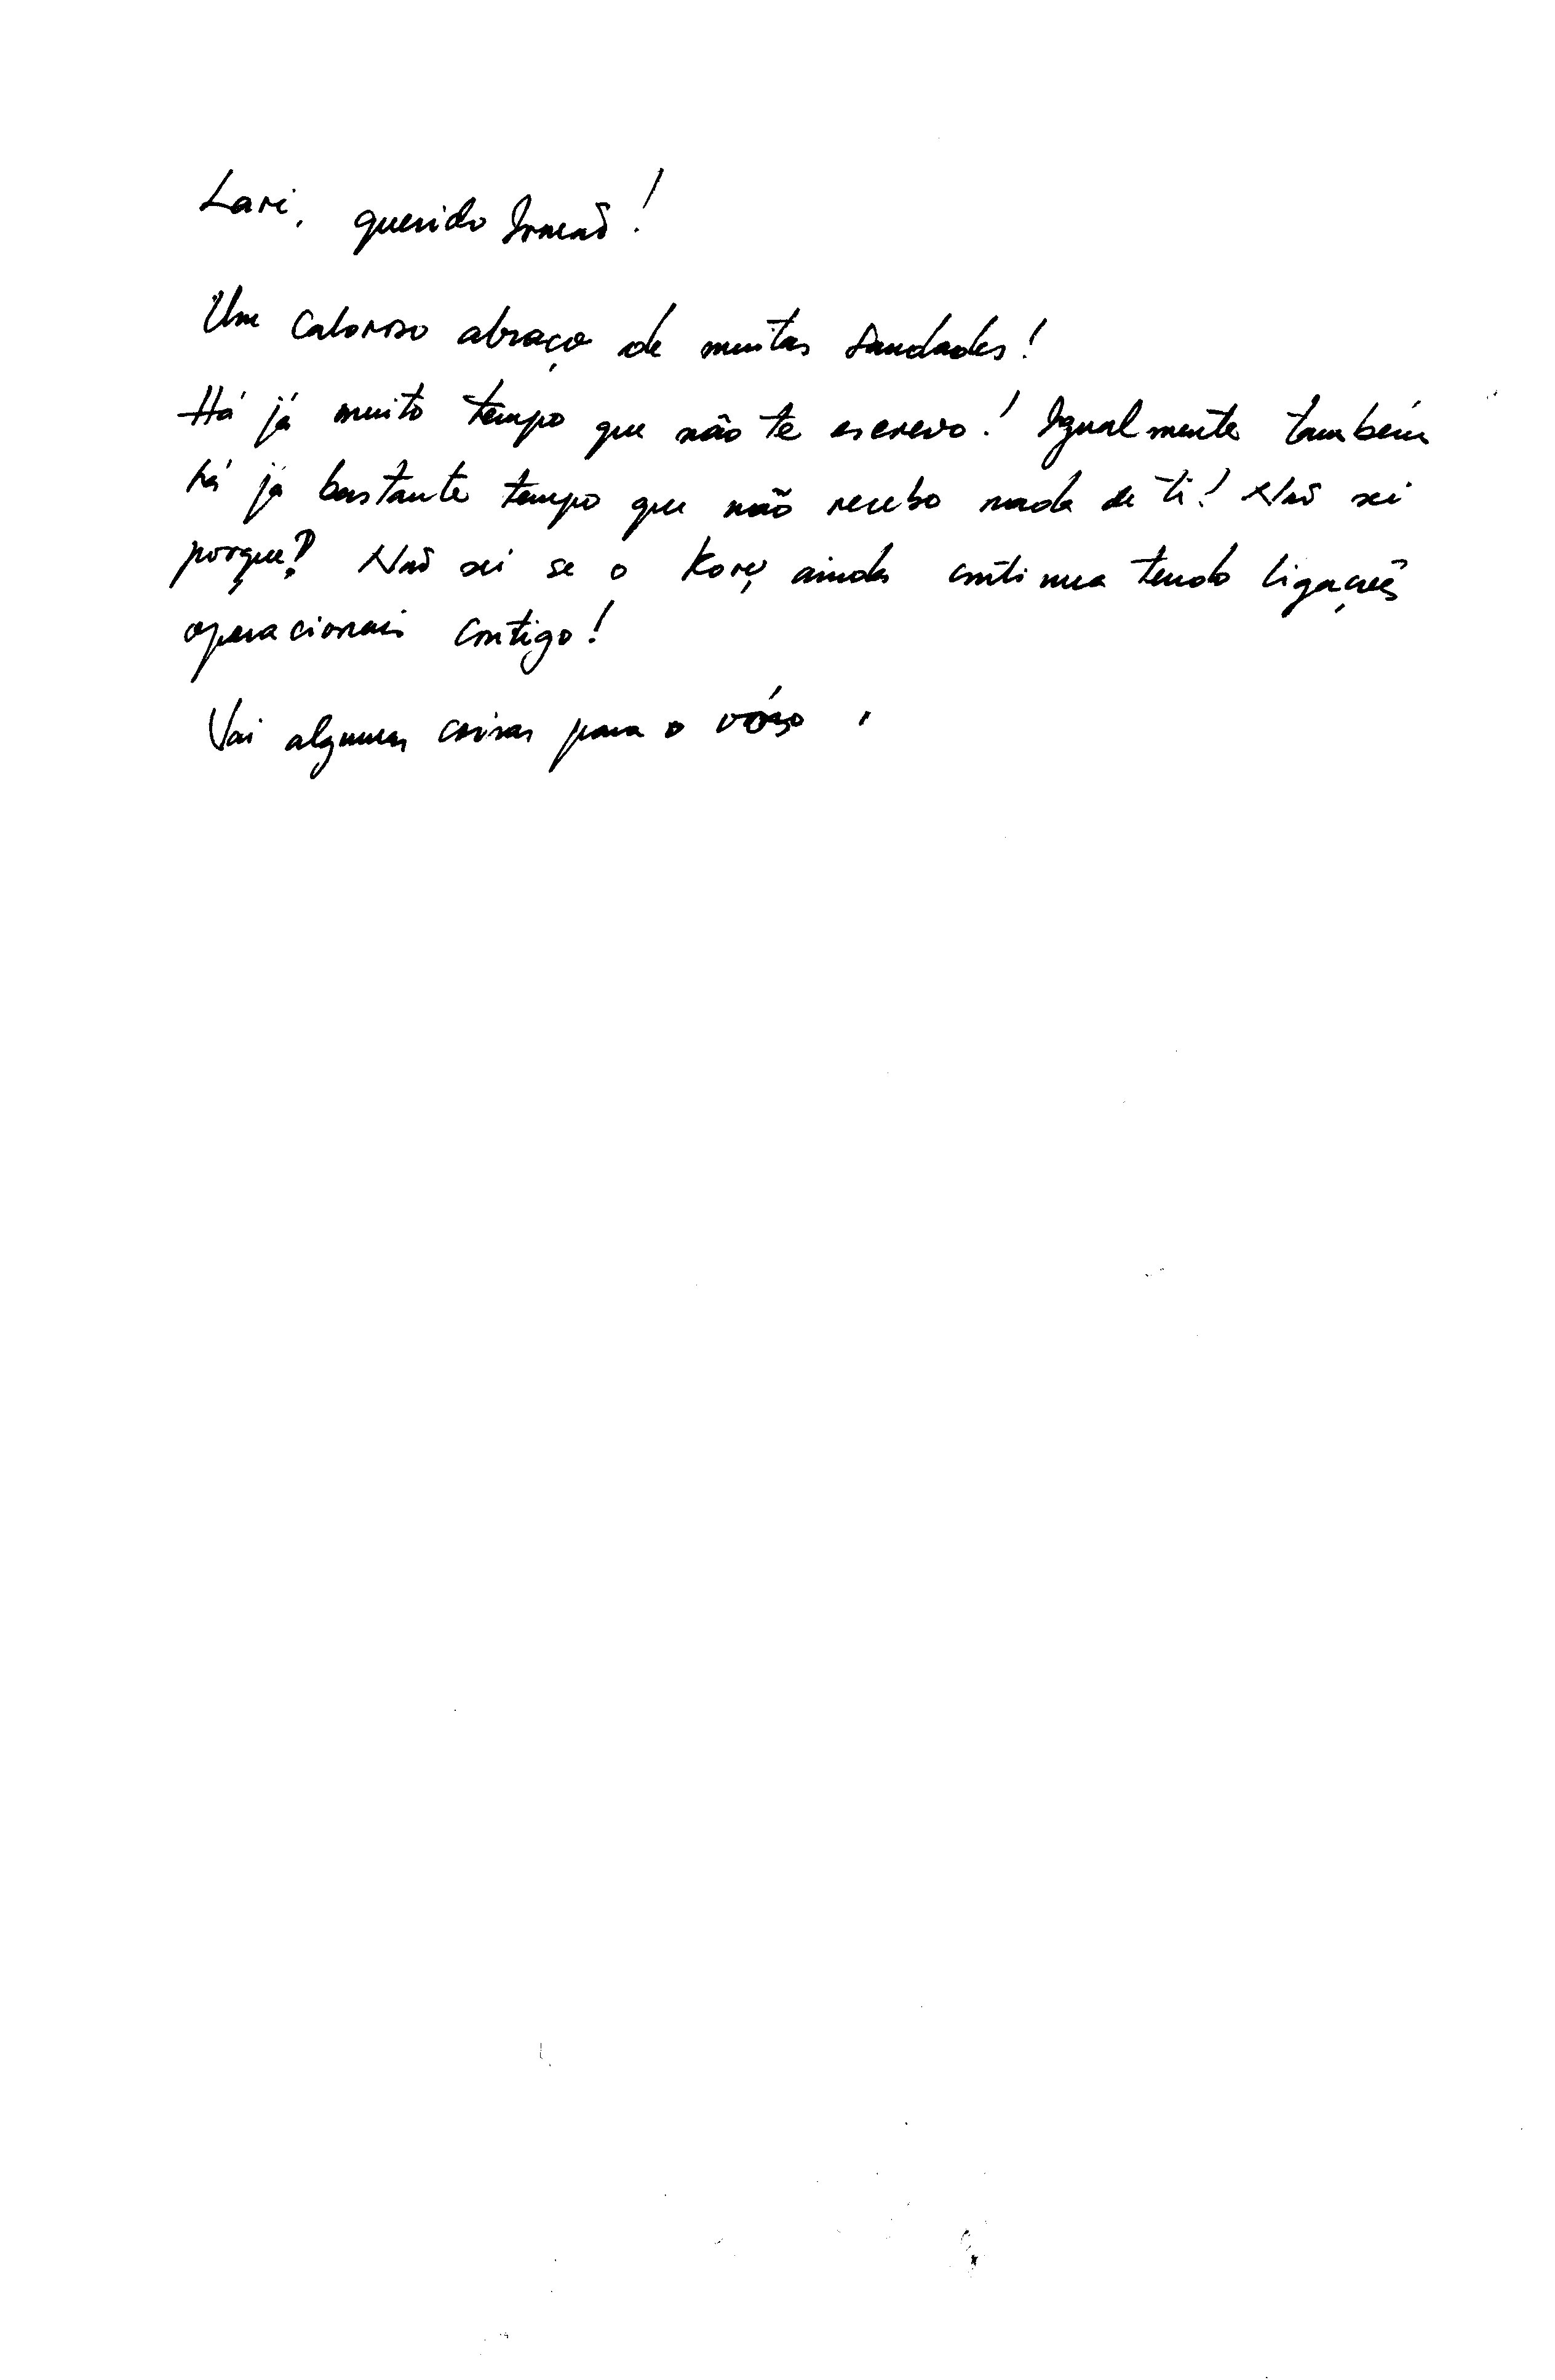 Lari, querido Irmaõ!
Um caloroso abraço de muitas saudades!
Há já muito tempo que não te escrevo! Igualmente também
há já bastante tempo que não recebo nada de ti! Naõ sei
porque? Naõ sei se o Kory ainda continua tendo ligações
operacionais contigo!
Vai algumas coisas para o vósso